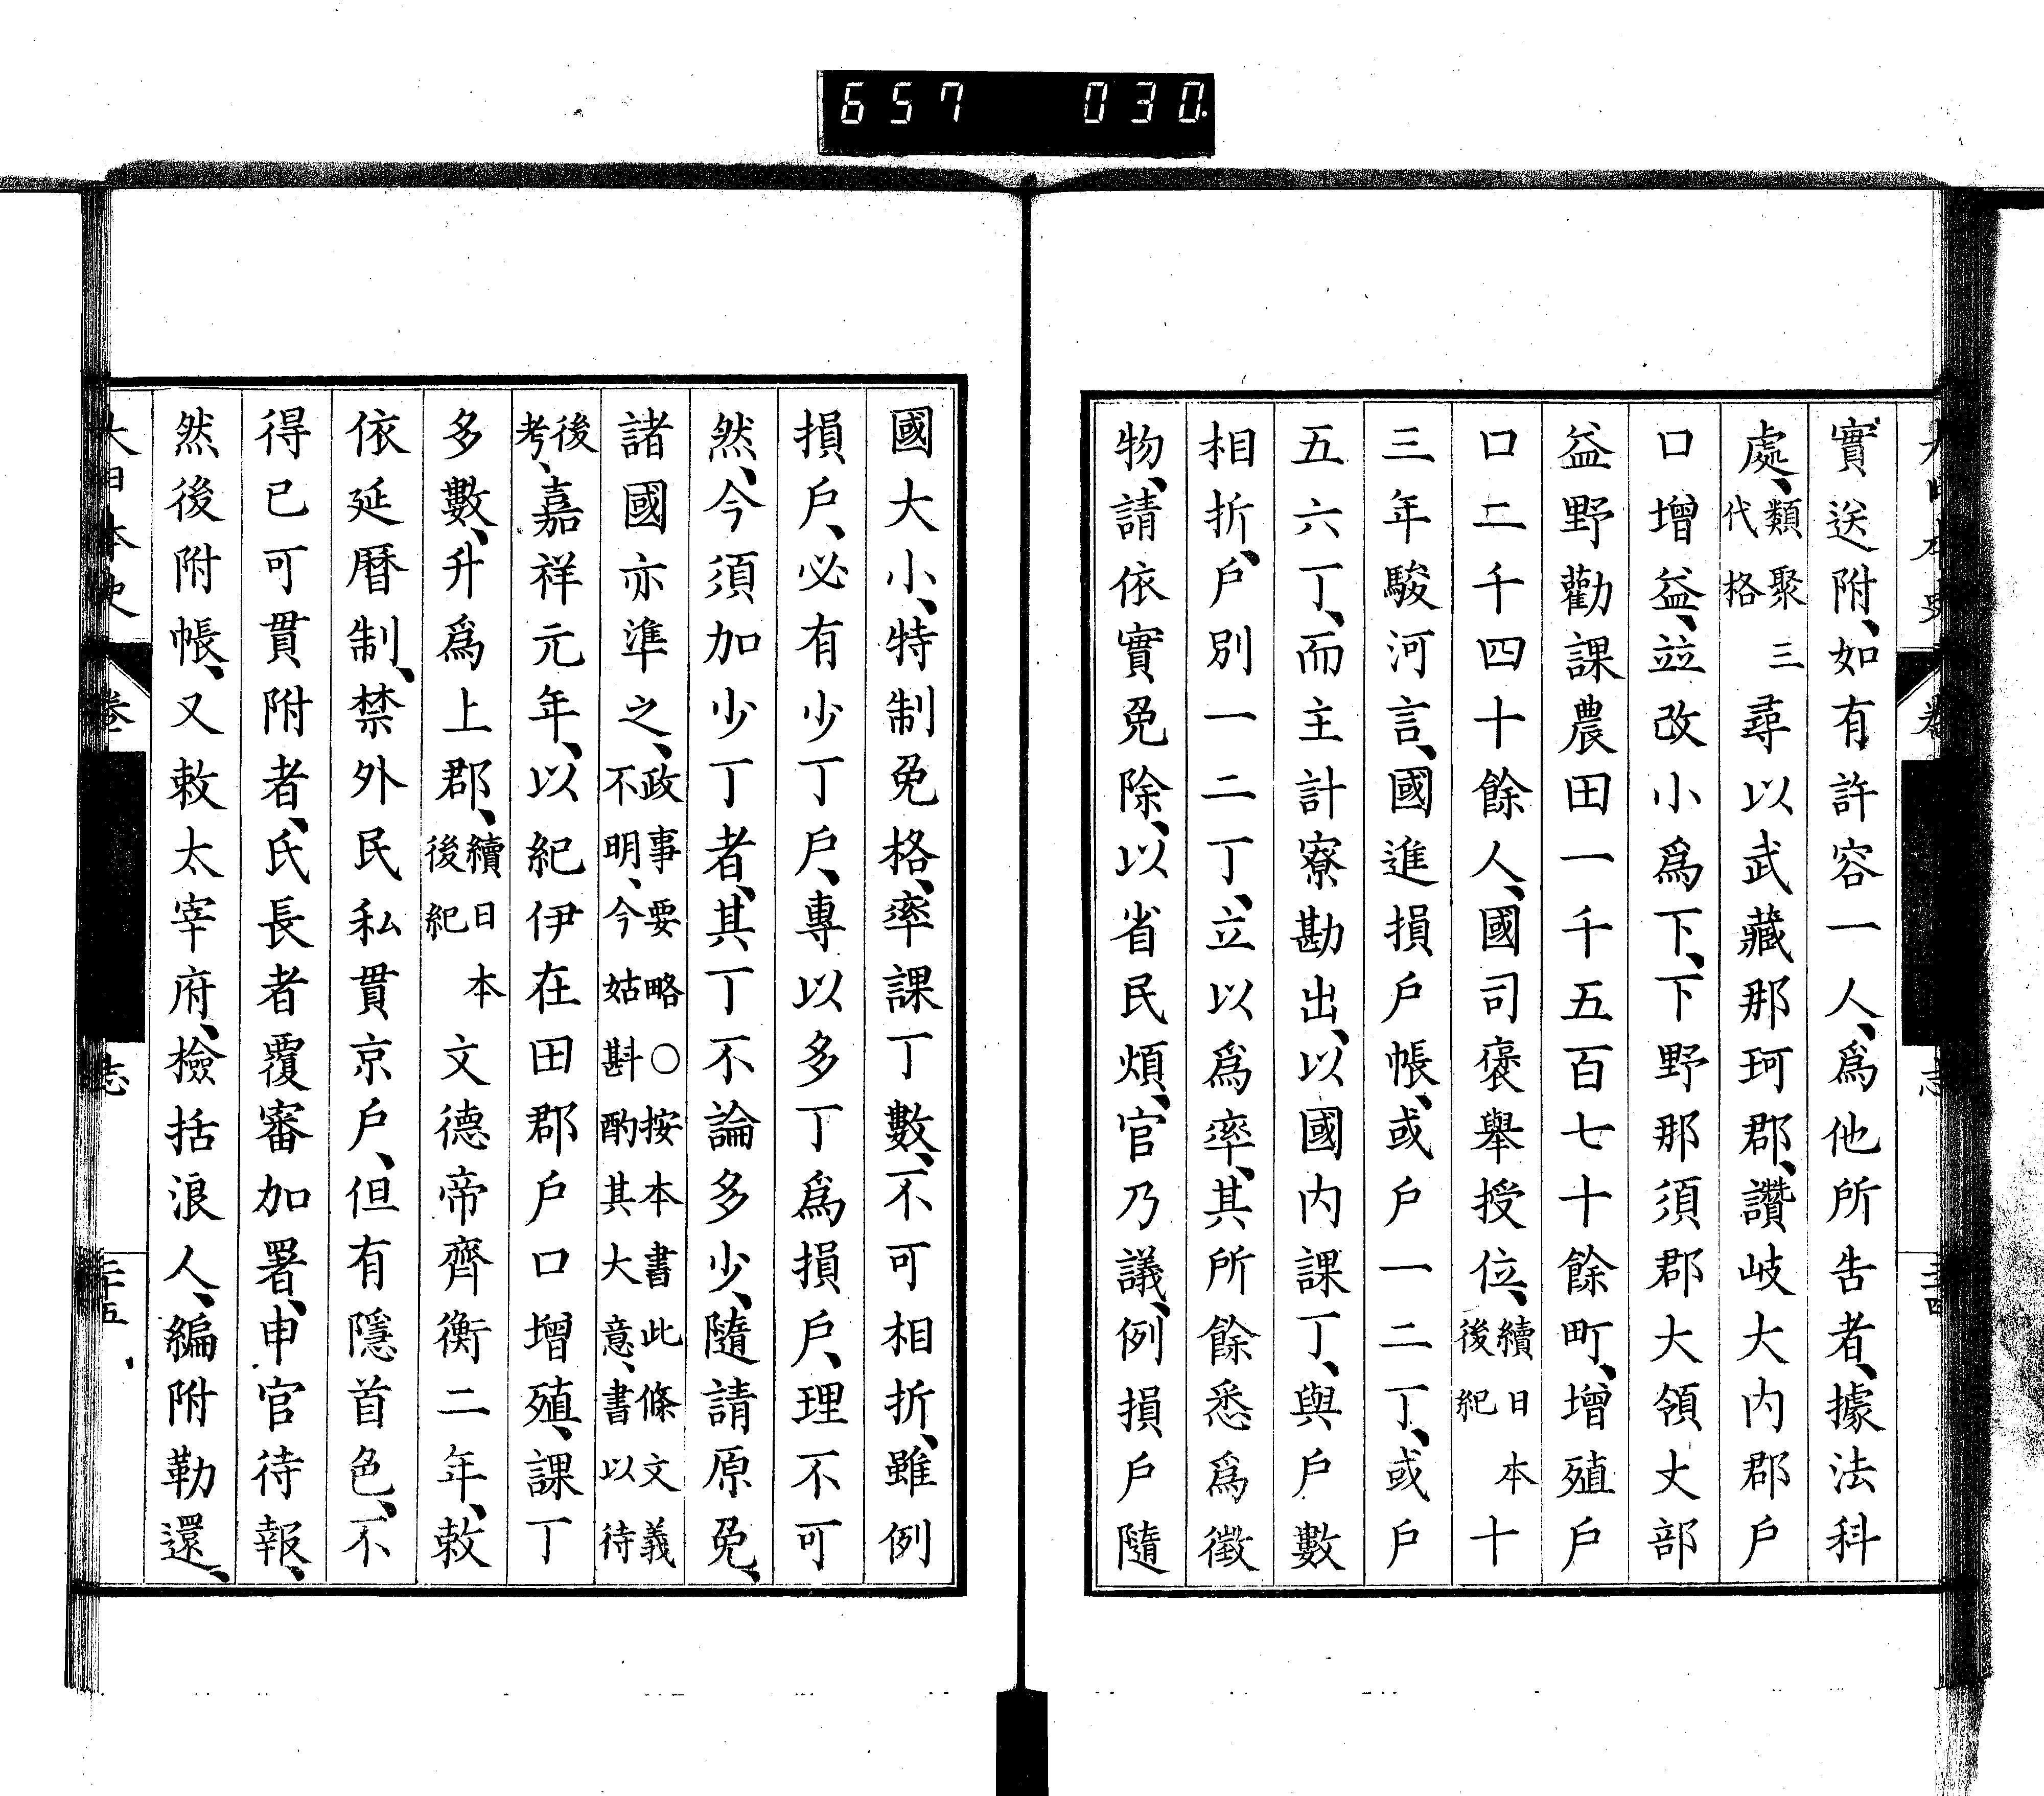 657 030.
實送附、如有許容一人、爲他所告者、據法科
處、類聚三代格尋以武藏那珂郡、讚岐大内郡戶
口增益、竝改小爲下、下野那須郡大領丈部
益野勸課農田一千五百七十餘町、增殖戶
口二千四十餘人、國司褒舉授位、續日本後紀十
三年駿河言、國進損戶帳、或戶一二丁、或戶
五六丁、而主計寮勘出、以國内課丁、與戶數
相折、戶別一二丁、立以爲率、其所餘悉爲徵
物、請依實免除、以省民煩、官乃議、例損戶隨
國大小、特制免格、率課丁數、不可相折、雖例
損戶、必有少丁戶、專以多丁爲損戶、理不可
然、今須加少丁者、其丁不論多少、隨請原免、
諸國亦準之、政事要略○按本書此條文義不明、今姑斟酌其大意、書以待
後考、嘉祥元年、以紀伊在田郡戶口增殖、課丁
多數、升爲上郡、續日本後紀文德帝齊衡二年、敕
依延曆制、禁外民私貫京戶、但有隱首色、不
得已可貫附者、氏長者覆審加署、申官待報、
然後附帳、又敕太宰府、檢括浪人、編附勒還、
大日本史 卷 志 三十五